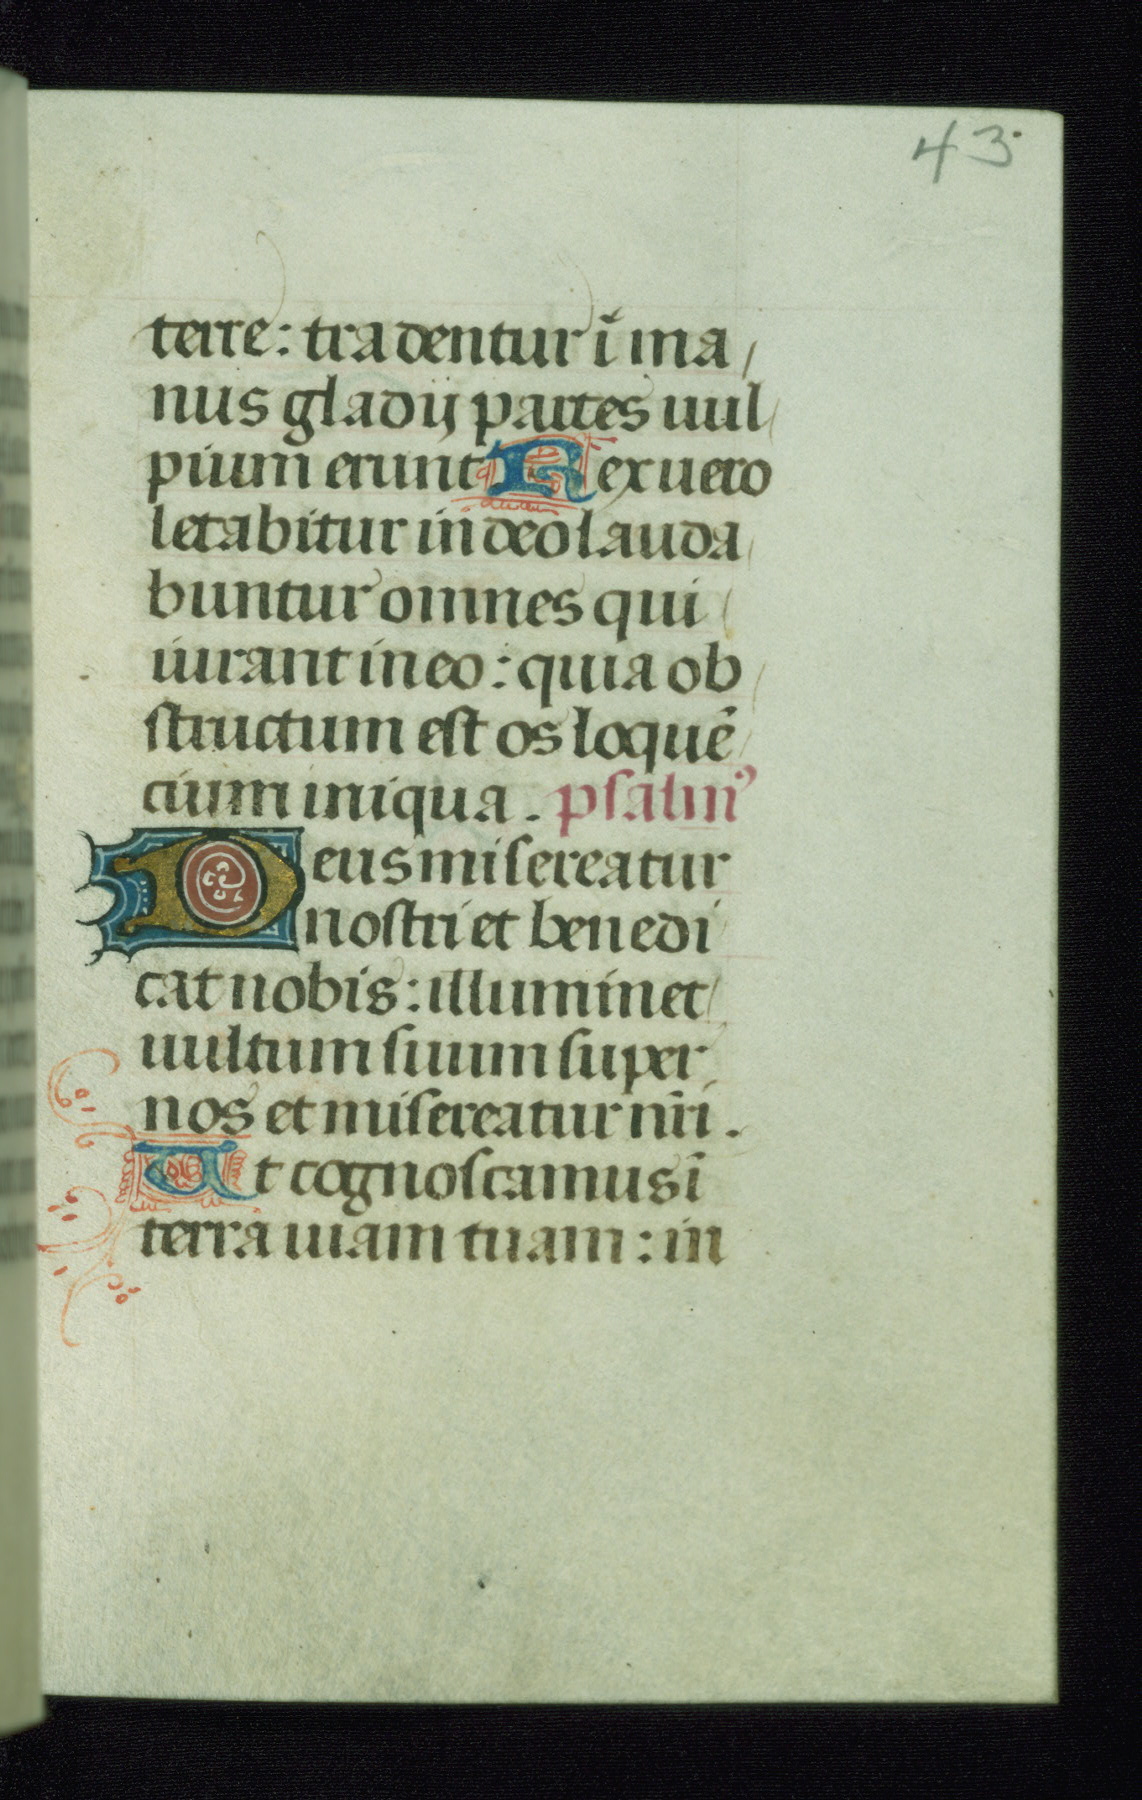 43
terre: tradentur ī ma
nus gladij partes uul
pium erunt Rex uero
letabitur in deo lauda
buntur omnes qui
iurant in eo: quia ob
structum est os loquē
cium iniqua. psalmꝰ
Deus misereatur
nostri et benedi
cat nobis: illuminet
uultum suum super
nos et misereatur nr̄i.
Ut cognoscamus ī
terra uiam tuam: in